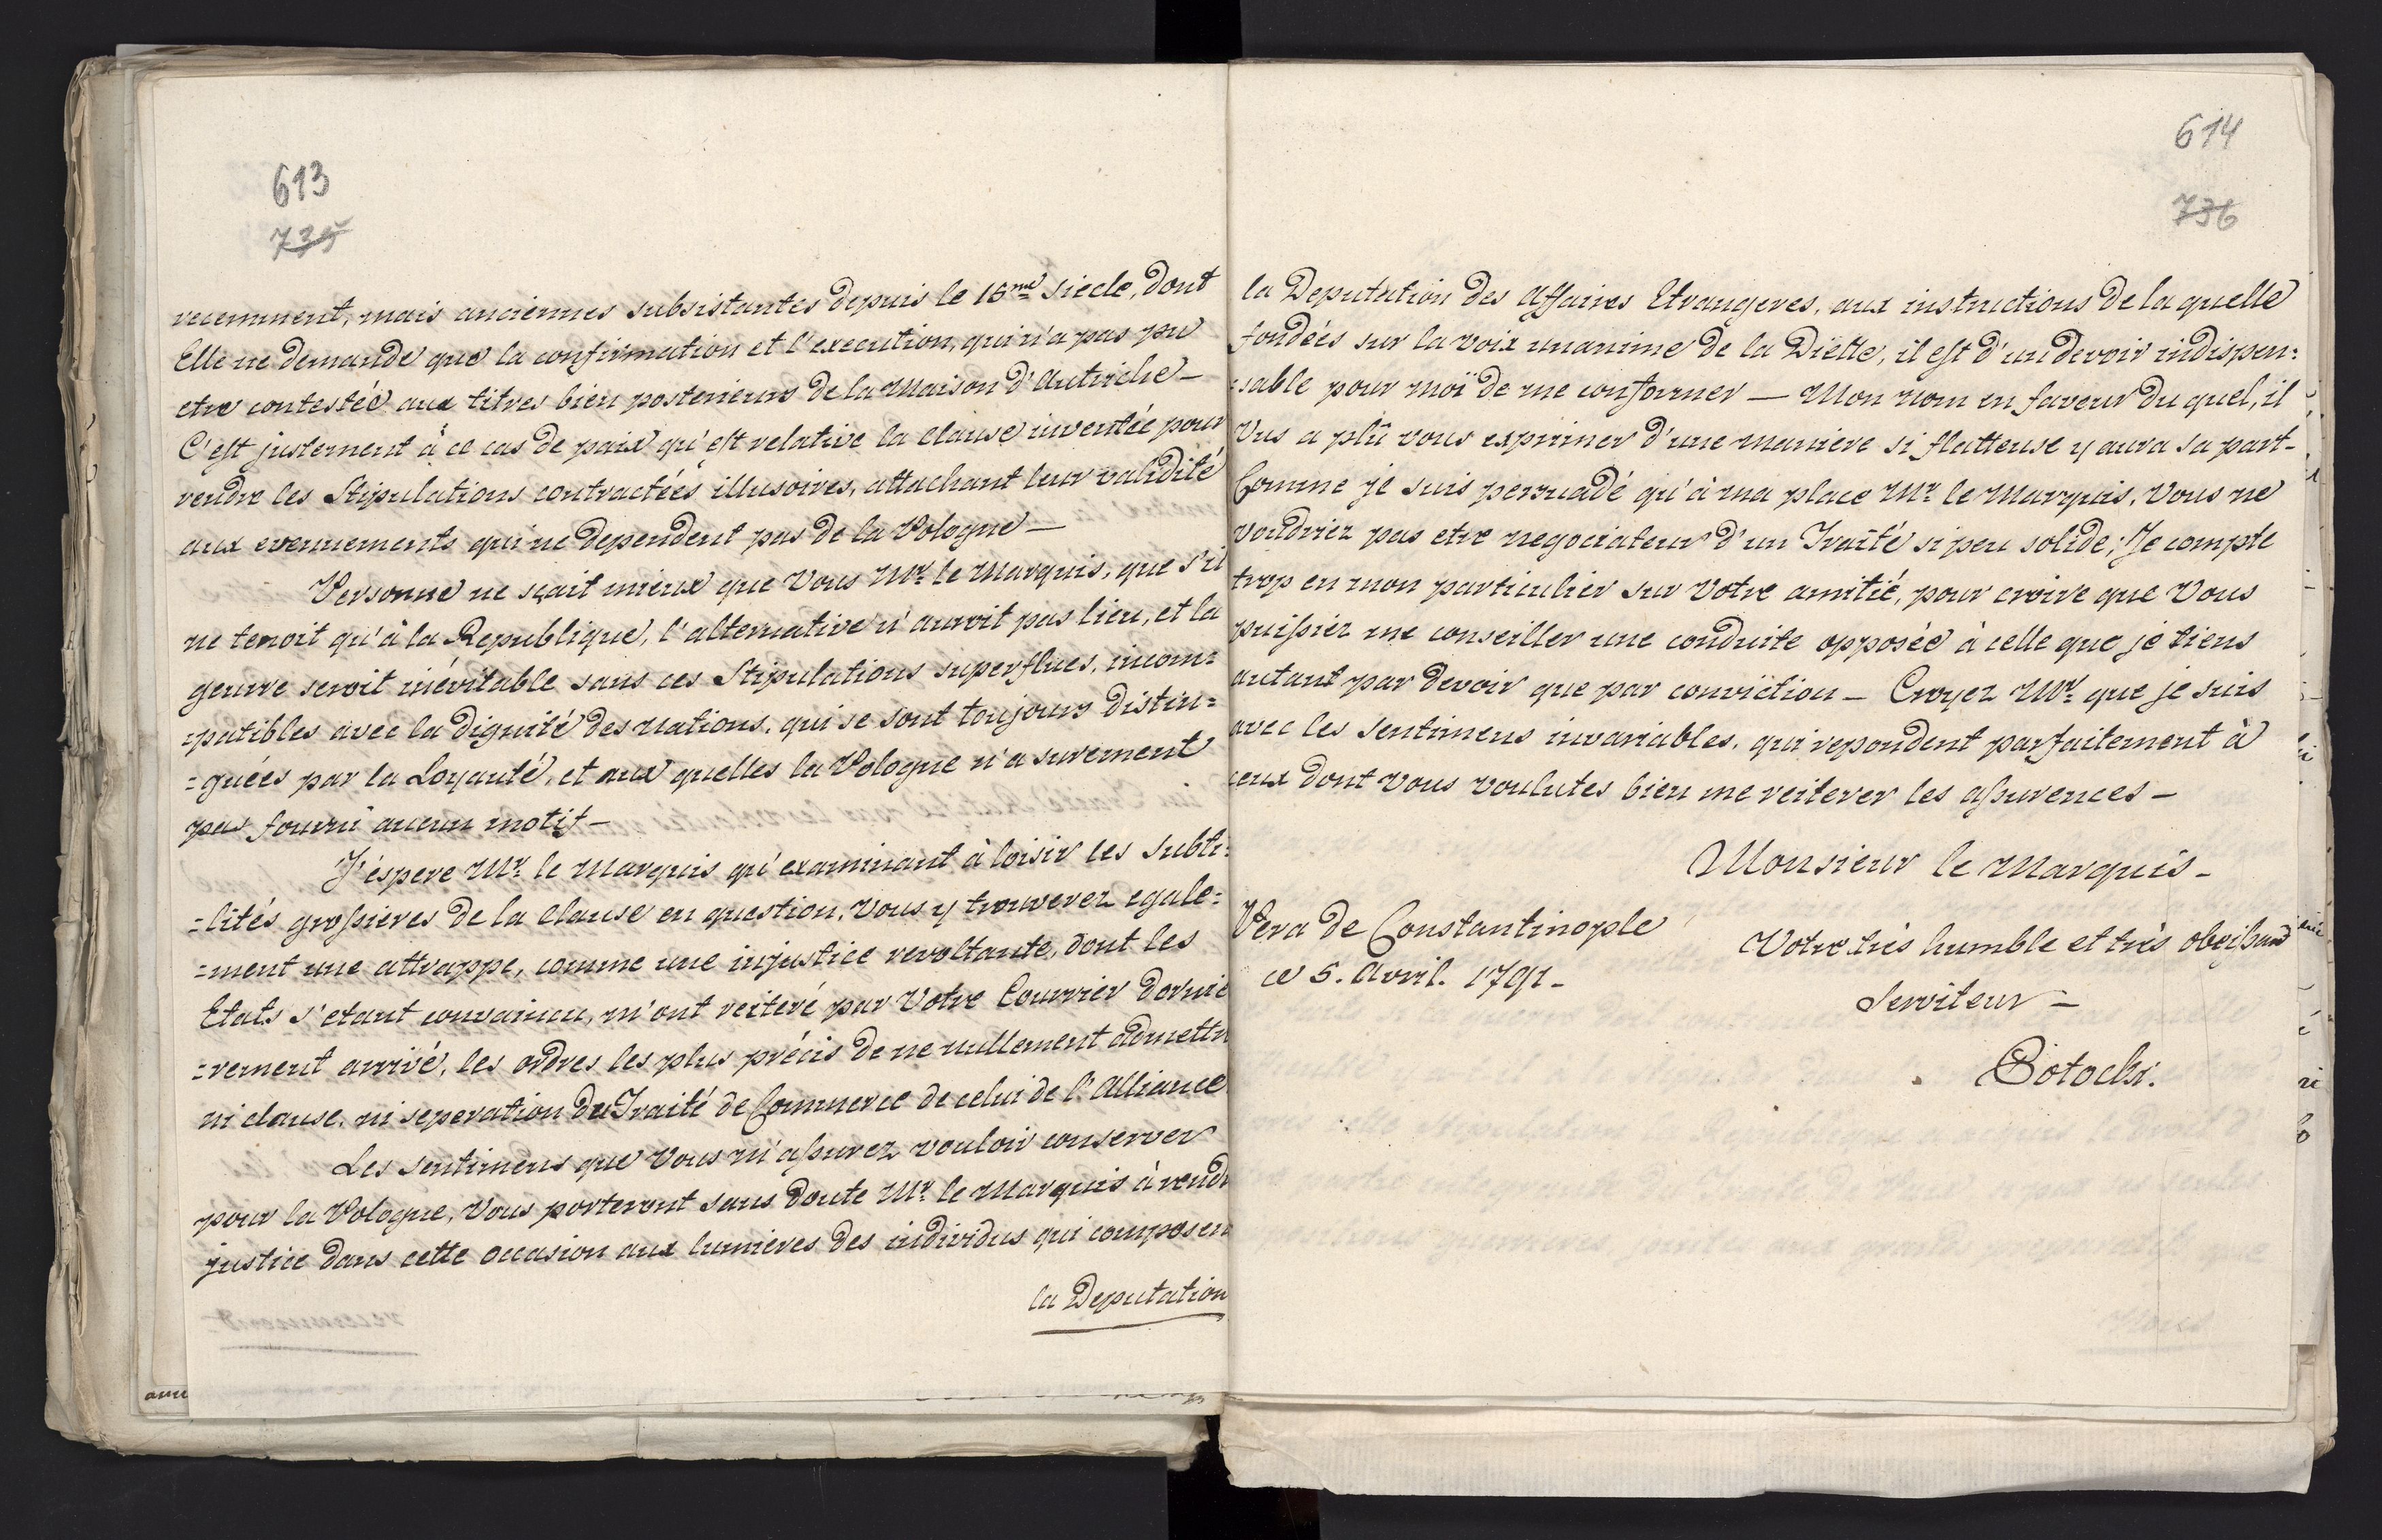 613
735
recemment, mais anciennes subsistantes depuis le 16me siecle, dont
Elle ne demande que la confirmation et l'execution, qui n'a pas pu
etre contestée aux titres bien posterieurs de la Maison d'Autriche —
C'est justement à ce cas de paix qu'est relative la clause inventée pour
rendre les Stipulations contractées illusoires, attachant leur validité
aux evennements qui ne dependent pas de la Pologne —
Personne ne sçait mieux que Vous Mr. le Marquis, que s'il
ne tenoit qu'à la Republique, l'alternative n'auroit pas lieu, et la
geurre seroit inévitable sans ces Stipulations superflues, incom=
=patibles avec la dignité des nations, qui se sont toujours distin=
=guées par la Loyauté, et aux quelles la Pologne n'a surement
pas fourni aucun motif —
J'éspere Mr. le Marquis qu'examinant à loisir les subti=
=lités grossieres de la clause en question, vous y trouverez egale=
=ment une attrappe, comme une injustice revoltante, dont les
Etats s'etant convaincu, m'ont reiteré par Votre Courrier dernie
=rement arrivé, les ordres les plus précis de ne nullement admettre
ni clause, ni seperation du Traité de Commerce de celui de l'Alliance
Les sentimens que Vous m'assurez vouloir conserver
pour la Pologne, Vous porteront sans doute Mr. le Marquis à rendr
justice dans cette occasion aux lumieres des individus qui composen
la Deputation
614
736
la Deputation des Affaires Etrangeres, aux instructions de la quelle
fondées sur la voix unanime de la Diette, il est d'un devoir indispen=
=sable pour moï de me conformer — Mon nom en faveur du quel, il
Vus a plû vous exprimer d'une maniere si flatteuse y aura sa part —
Comme je suis persuadé qu'à ma place Mr. le Marquis, Vous ne
voudriez pas etre negociateur d'un Traité si peu solide; Je compte
trop en mon particulier sur Votre amitié, pour croire que Vous
puissiez me conseiller une conduite opposée à celle que je tiens
autant par devoir que par conviction — Croyez Mr. que je suis
avec les sentimens invariables, qui repondent parfaitement à
ceux dont vous voulutes bien me reiterer les assurences —
Monsieur le Marquis —
Pera de Constantinople
ce 5. Avril. 1791 —
Votre très humble et très obeissand
Serviteur =
Potocki.